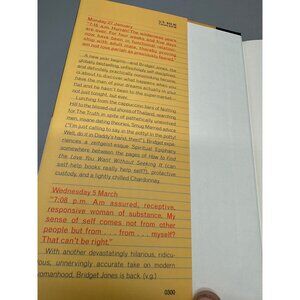 Monday 27 January
"7:15 a.m. Hurrah! The wilderness years
are over. For four weeks and five days
now have been in functional relation-
ship with adult male, thereby proving
am not love pariah as previously feared."
A new year begins—and Bridget Jones, the
globally bestselling, unflinchingly self-disciplined,
and definitely practicing nonsmoking heroine
is about to discover what happens when you
have the man of your dreams actually in your
flat and he hasn't been to the supermarket—
not just tonight, but ever.
Lurching from the cappuccino bars of Notting
Hill to the blissed-out shores of Thailand, searching
for The Truth in spite of pathetically unevolved
men, insane dating theories, Smug Married advice
("I'm just calling to say in the potty! In the potty!
Well, do it in Daddy's hand, then!"), Bridget expe-
riences a zeitgeist-esque Spiritual Epiphany
somewhere between the pages of How to Find
the Love You Want Without Seeking It (can
self-help books really help self?), protective
custody, and a lightly chilled Chardonnay.
Wednesday 5 March
"7:08 p.m. Am assured, receptive,
responsive woman of substance. My
sense of self comes not from other
people but from . . . from . . . myself?
That can't be right."
With another devastatingly hilarious, ridicu-
lous, unnervingly accurate take on modern
womanhood, Bridget Jones is back. (v.g.)
0300